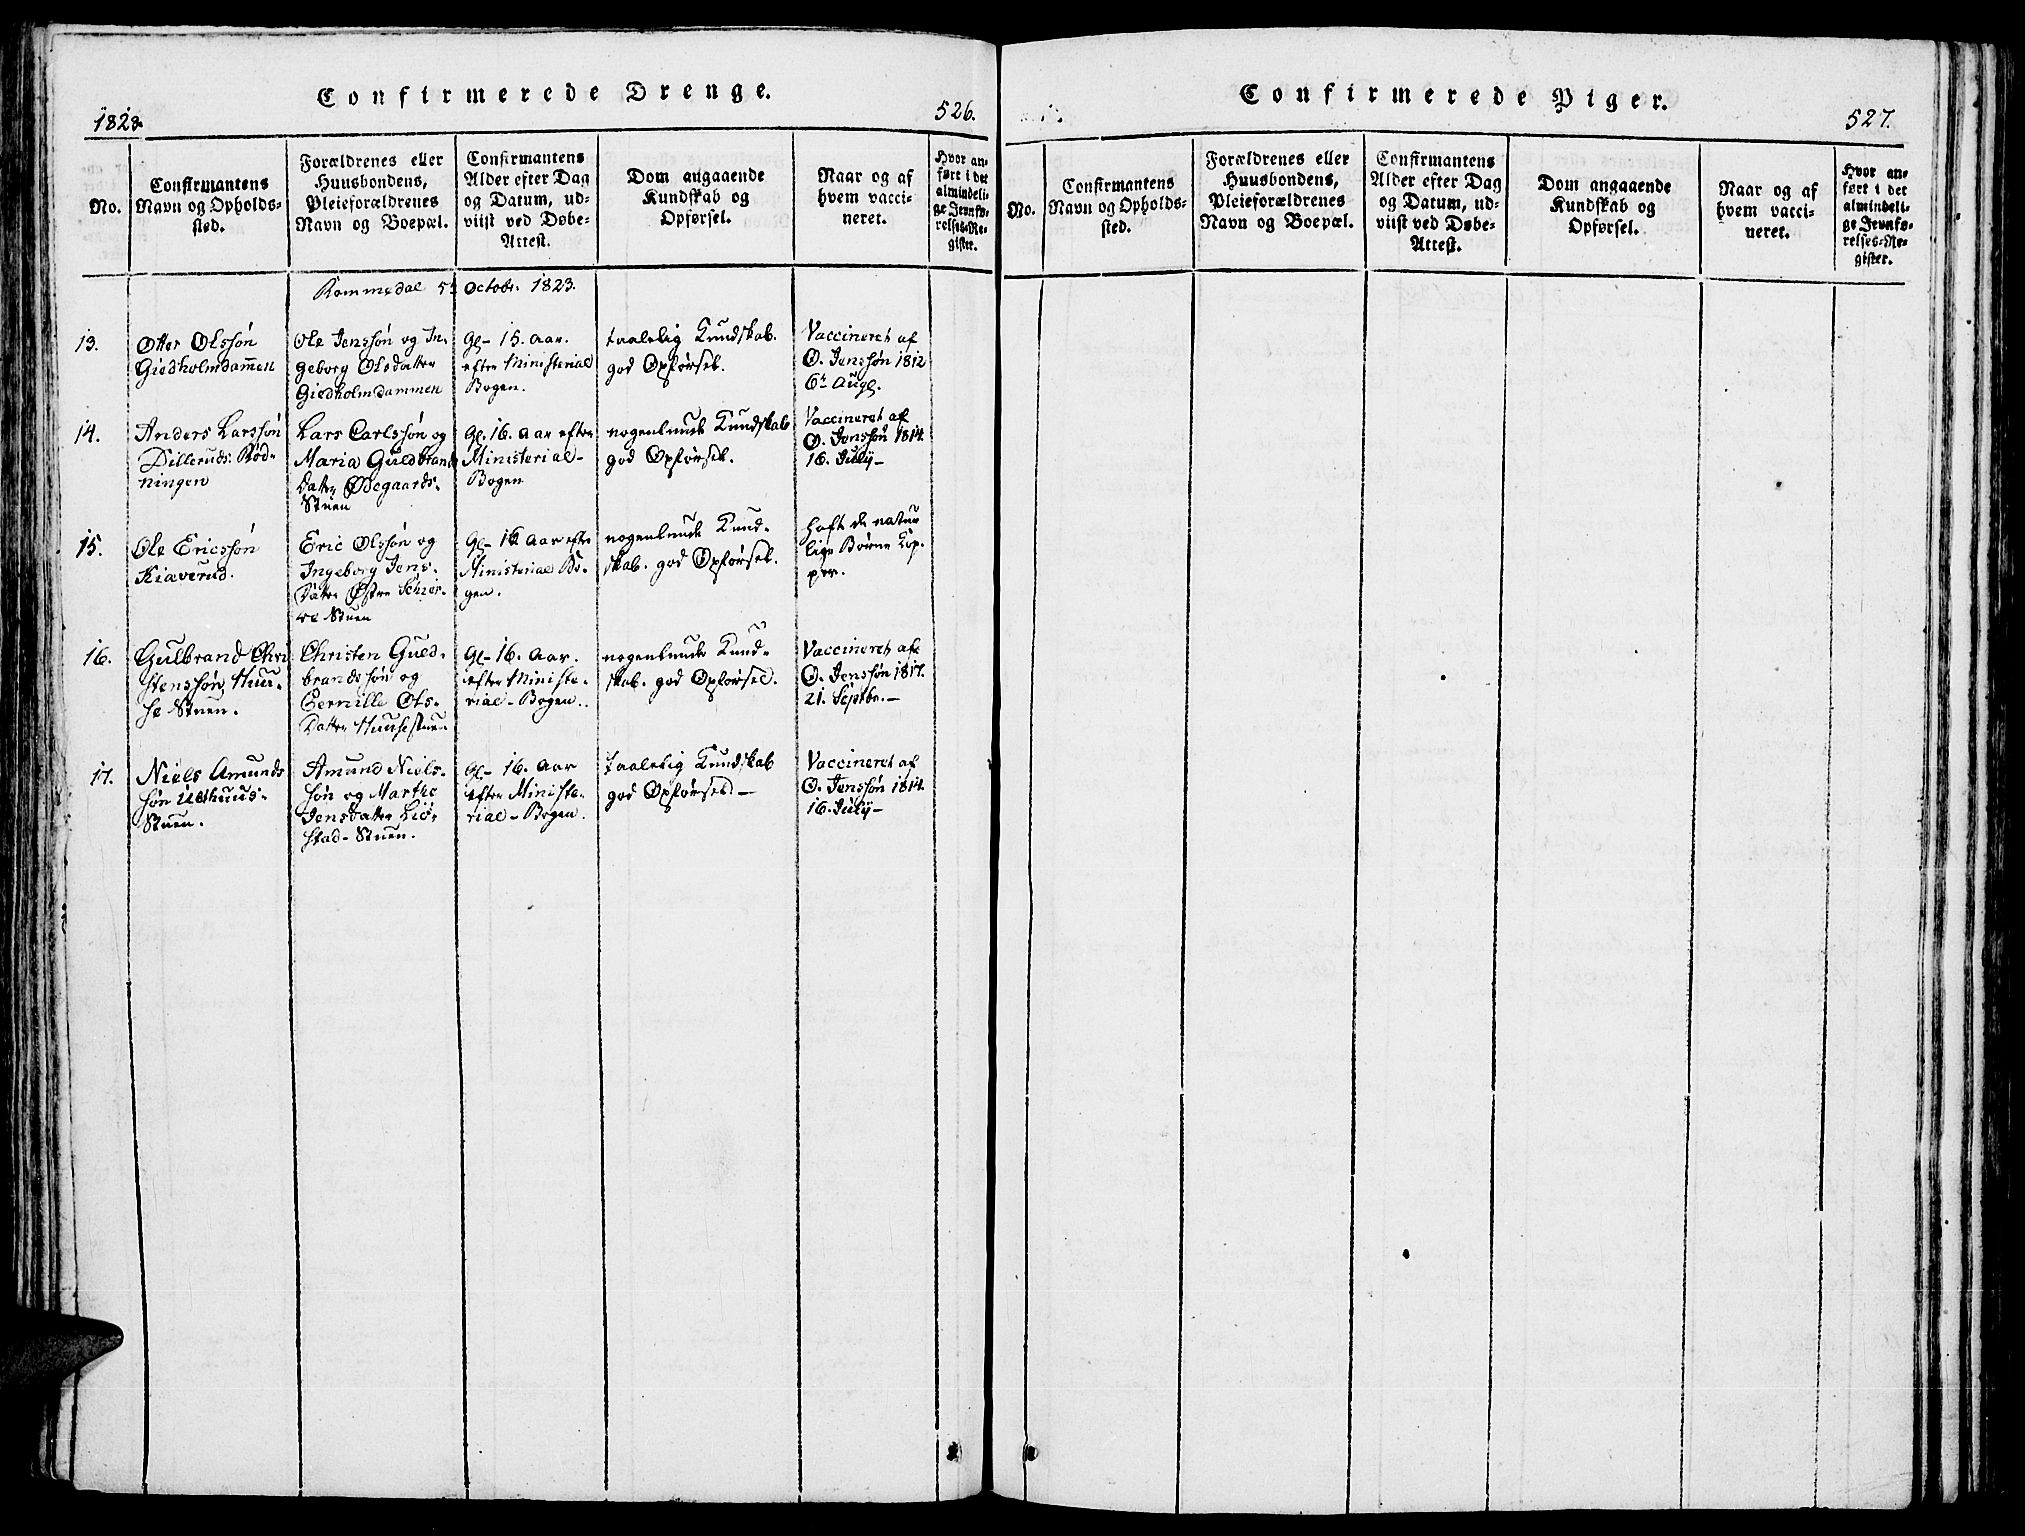 Confirmerede Drenge.
1823.
526.
No.
Confirmantens
Navn og Opholds-
sted.
Forældrenes eller
Huusbondens,
Pleieforældrenes
Navn og Boepæl.
Confirmantens
Alder efter Dag
og Datum, ud-
viist ved Døbe-
Attest.
Dom angaaende
Kundskab og
Opførsel.
Naar og af
hvem vacci-
neret.
Hvor an-
ført i det
almindeli-
ge Jevnfø-
relses-Re-
gister.
Rommedal 5te October 1823.
13.
Otter Olssøn
Giedholmdammen
Ole Jenssøn og In-
geborg Olsdatter
Giedholmdammen
Gl- 15. Aar.
efter Ministerial
Bogen.
taalelig Kundskab.
god Opførsel.
Vaccineret af
O. Jenssøn 1812
6te Aug.
14.
Anders Larssøn
Dilleruds-Rød-
ningen
Lars Carlssøn og
Maria Guldbrands
Datter Ødegaards-
Stuen
Gl. 16. Aar efter
Ministerial-
Bogen
nogenlunde Kundskab
god Opførsel.
Vaccineret af
O. Jenssøn 1814.
16. July-
15.
Ole Ericssøn
Kiaverud.
Eric Olssøn og
Ingeborg Jens-
Datter Østre Schier-
re Stuen
Gl- 16 Aar efter
Ministerial Bo-
gen.
nogenlunde Kund-
skab. god Opførsel.
haft de natur
lige Børne Kop-
per.
16.
Gulbrand Chri
stenssøn Huu-
se Stuen.
Christen Guld-
brandssøn og
Pernille Ols-
Datter Huusestuen
Gl- 16. Aar.
efter Ministe-
rial-Bogen.
nogenlunde Kund-
skab. god Opførsel.
Vaccineret af
O. Jenssøn 1817.
21. Septbr.-
17.
Niels Amunds
søn Uthuus-
Stuen.
Amund Niels-
søn og Marthe
Jensdatter Lie-
stad-Stuen.
Gl- 16. Aar
efter Ministe-
rial-Bogen.
taalelig Kundskab
god Opførsel-
Vaccineret af
O. Jenssøn 1814.
16. July-
Confirmerede Piger.
527.
No.
Confirmantens
Navn og Opholds-
sted.
Forældrenes eller
Huusbondens,
Pleieforældrenes
Navn og Boepæl.
Confirmantens
Alder efter Dag
og Datum, ud-
viist ved Døbe-
Attest.
Dom angaaende
Kundskab og
Opførsel.
Naar og af
hvem vacci-
neret.
Hvor an-
ført i det
almindeli-
ge Jevnfø-
relses-Re-
gister.